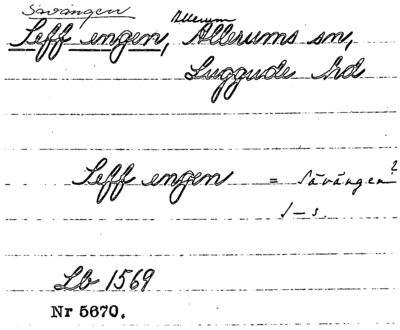 Sävängen
Seff engen, Allerum Allerums sn,
Luggude hd
Seff engen = Sävängen?
J-s.
Lb 1569
Nr 5670.